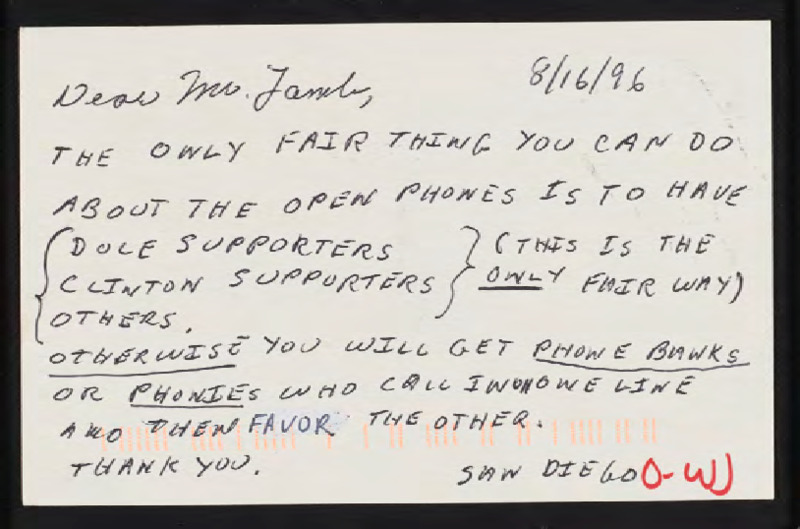 Dear Mr. Lamb, 8/16/96
THE ONLY FAIR THING YOU CAN DO
ABOUT THE OPEN PHONES IS TO HAVE
DOLE SUPPORTERS (THIS IS THE
CLINTON SUPPORTERS ONLY FAIR WAY)
OTHERS.
OTHERWISE YOU WILL GET PHONE BANKS
OR PHONIES WHO CALL IN ON ONE LINE
AND THEN FAVOR THE OTHER.
THANK YOU. SAN DIEGO